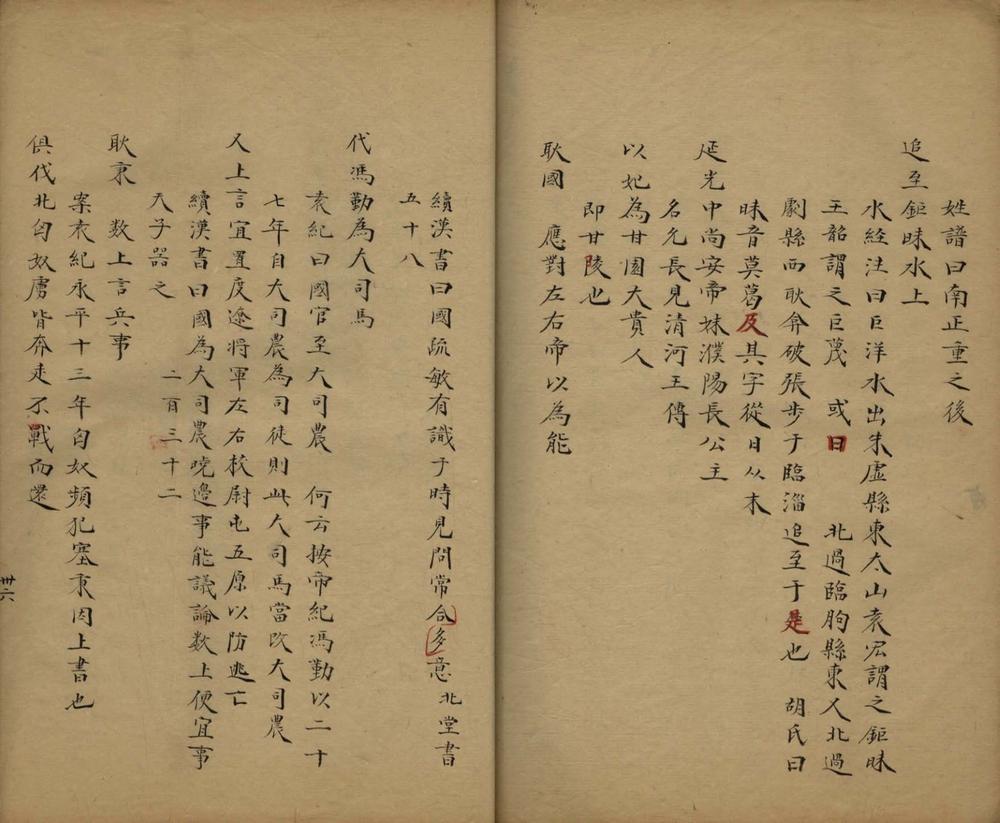 姓譜曰南正重之後
追至鉅昧水上
水経注曰巨洋水出朱虛縣東太山袁宏謂之鉅昧
王韶謂之巨蔑　或曰　北過臨朐縣東又北過
劇縣西耿弇破張步于臨淄追至于是也　胡氏曰
昧音莫葛及其字從日从末
延光中尚安帝妹濮陽長公主
名久長見清河王傳
以妃為甘園大貴人
即甘陵也
耿國　應對左右帝以為能
續漢書曰國疏敏有識于時見問常合多意　北堂書
五十八
代馮勤為大司馬
袁紀曰國官至大司農　何云按帝紀馮勤以二十
七年自大司農為司徒則此大司馬當改大司農
又上言宜置度遼將軍左右校尉屯五原以防逃亡
續漢書曰國為大司農曉邊事能議論数上便宜事
天子器之　二百三十二
耿秉　数上言兵事
案袁紀永平十三年匈奴頻犯塞秉因上書也
俱伐北匈奴虜皆奔走不戰而還
卅六